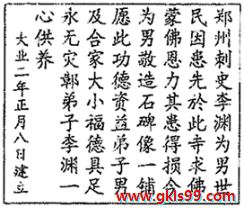 郑州刺史李渊为男世
民因患先於此寺求佛
蒙佛恩力其患得损今
为男敬造石碑像一铺
愿此功德资益弟子男
及合家大小福德具足
永无灾郭弟子李渊一
心供养
大业二年正月八日建立
www.gkls99.com